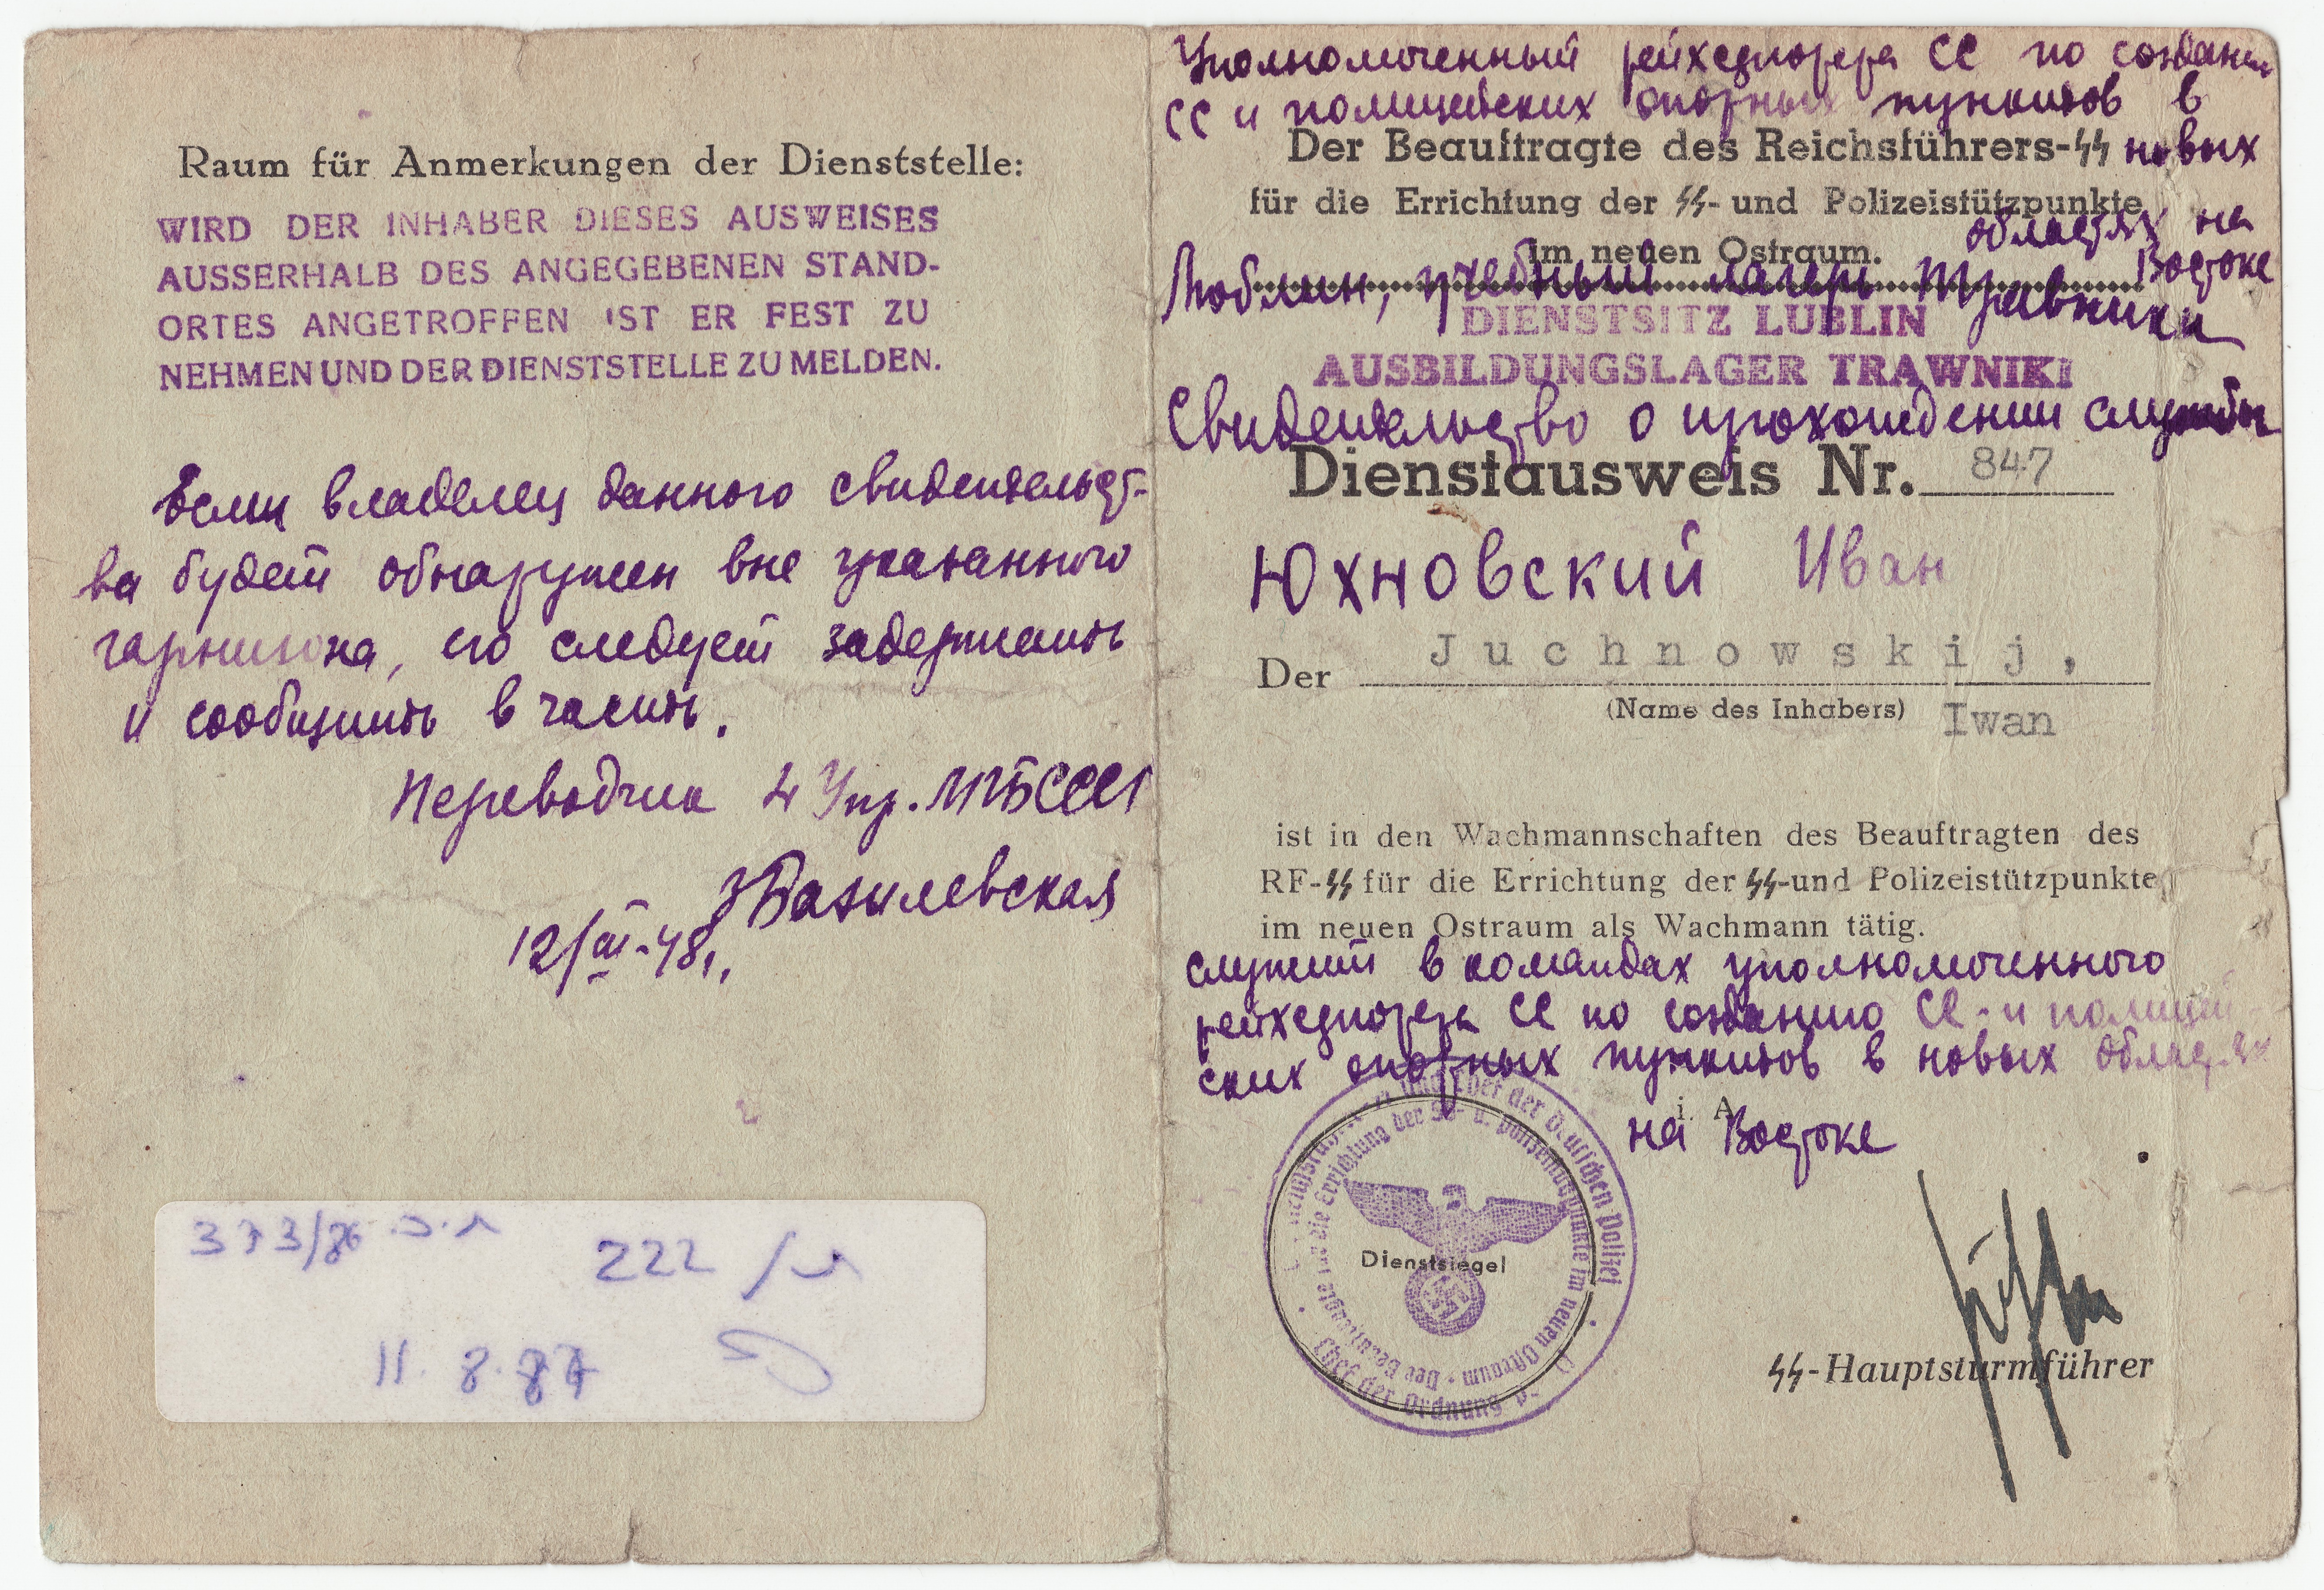 Raum für Anmerkungen der Dienststelle:
WIRD DER INHABER DIESES AUSWEISES
AUSSERHALB DES ANGEGEBENEN STAND-
ORTES ANGETROFFEN IST ER FEST ZU
NEHMEN UND DER DIENSTSTELLE ZU MELDEN.
Если владелец данного свидетельст-
ва будет обнаружен вне указанного
гарнизона, его следует задержать
и сообщить в часть.
Переводчик 4 Упр. МГБ СССР
Базилевская
12/III-48г.
222
11. 8. 87
Уполномоченный рейхсфюрера СС по создан
СС и полицейских опорных пунктов в
Der Beauftragte des Reichsführers-SS новых
für die Errichtung der SS- und Polizeistützpunkte
областях на
im neuen Ostraum.
Востоке
Люблин, учебный лагерь Травники
DIENSTSITZ LUBLIN
AUSBILDUNGSLAGER TRAWNIKI
Свидетельство о прохождении службы
Dienstausweis Nr. 847
Юхновский Иван
Der Juchnowskij,
(Name des Inhabers) Iwan
ist in den Wachmannschaften des Beauftragten des
RF-SS für die Errichtung der SS-und Polizeistützpunkte
im neuen Ostraum als Wachmann tätig.
служит в командах уполномоченного
рейхсфюрера СС по созданию СС-и полицей
ских опорных пунктов в новых областях
i. A.
на Востоке
und Chef der Deutschen Polizei
Chef der Ordnung
Der Beauftragte für die Errichtung der SS- u. Polizeistützpunkte im neuen Ostraum
Dienstsiegel
SS-Hauptsturmführer